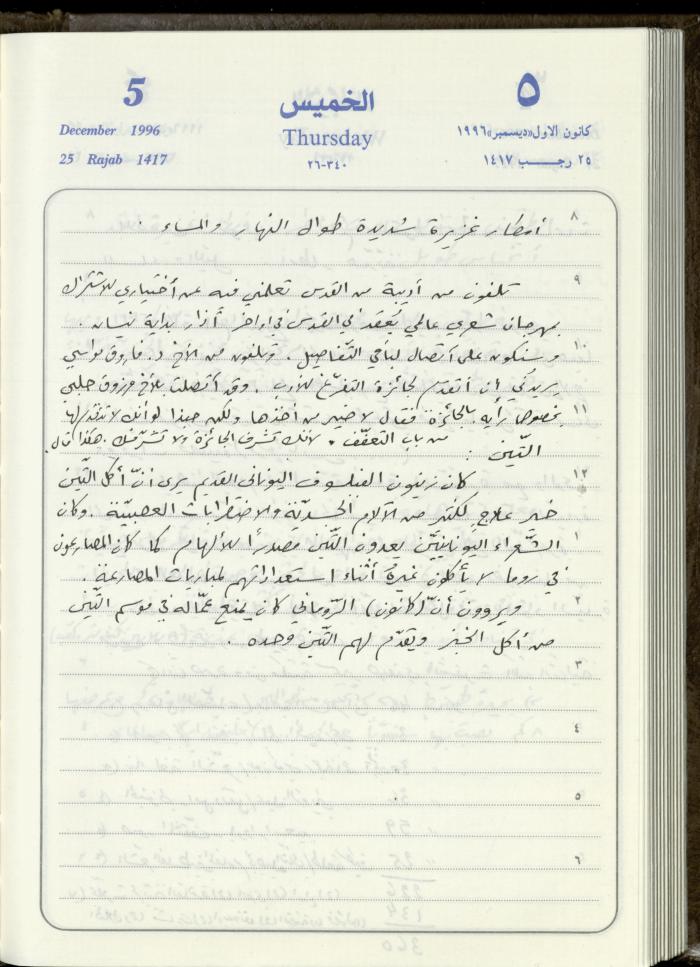 5
December 1996
25 Rajab 1417
الخميس
Thursday
٣٤٠-٢٦
٥
كانون الاول «ديسمبر» ١٩٩٦
٢٥ رجـــب ١٤١٧
٨
أمطار غزيرة شديدة طوال النهار والمساء .
٩
تلفون من أديبة من القدس تعلمني فيه عن أختياري للاشتراك
بمهرجان شعري عالمي يُعقد في القدس في اواخر أذار بداية نيسان .
١٠
وسنكون على أتصال لباقي التّفاصيل . وتلفون من الأخ د. فاروق مواسي
يريدني أن أتقدّم لجائزة التفرّغ للأدب . وقد أتصلت بالأخ مرزوق حلبي
١١
بخصوص رأيه بالجائزة فقال لا ضير من أخذها ولكن حبذا لو أنك لا تتقدّم لها
من باب التعفّف . لأنك تشرّف الجائزة ولا تشرّفك . هكذا قال .
التّين :
١٢
كان زينون الفيلسوف اليوناني القديم يرى أنّ أكل التّين
خير علاجٍ لكثير من الآلام الجسديّة والاضطرابات العصبيّة . وكان
١
الشّعراء اليونانيّين يعدون التّين مصدراً للألهام كما كان المصارعون
في روما لا يأكلون غيرهُ أثناء استعداداتهم لمباريات المصارعة .
٢
ويروون أنّ (كانون) الرّوماني كان يمنع عمّاله في موسم التّين
من أكل الخبز ويقدّم لهم التّين وحده .
٣
٤
٥
٦